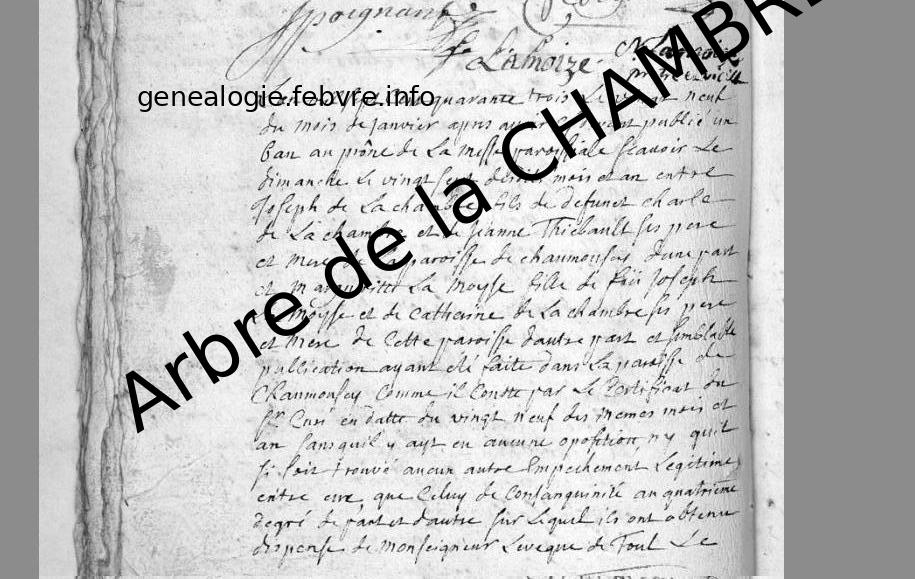 Poignant
F. Lamoize
genealogie.febvre.info
Arbre de la CHAMBRE
quarante trois Le vingt neuf
du mois de Janvier apres avoir publié un
ban au prône de La messe paroissiale scavoir Le
dimanche Le vingt sept desdits mois et an entre
Joseph de Lachambre fils de defunct charle
de Lachambre et de Jeanne Thiebault ses pere
et mere de paroisse de chaumousey d'une part
et margueritte La moysse fille de Joseph
La moysse et de Catherine de La chambre ses pere
et mere de Cette paroisse d'autre part et semblable
publication ayant été faite dans La paroisse de
Chaumousey comme il Conste par Le Certificat du
Sr Curé en datte du vingt neuf des memes mois et
an sans quil y ayt eu aucune oposition ny quil
si soit trouvé aucun autre Empechement Legitime
entre eux que Celuy de Consanguinité au quatrieme
degré de part et d'autre sur Lequel ils ont obtenu
dispense de Monseigneur Leveque de Toul Le